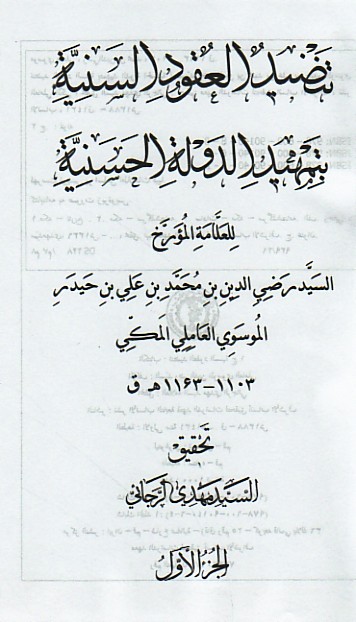 تنضيد العقود السنية
بتمهيد الدولة الحسنية
للعلامة المؤرخ
السيد رضي الدين بن محمد بن علي بن حيدر
الموسوي العاملي المكي
١١٠٣-١١٦٣ هـ ق
تحقيق
السيد مهدي الرجائي
الجزء الأول